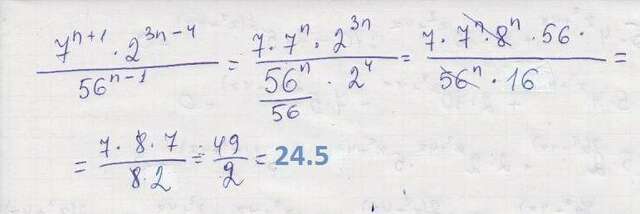 7^{n+1} · 2^{3n-4} / 56^{n-1} = 7 · 7^n · 2^{3n} / (56^n / 56 · 2^4) = 7 · 7^n · 8^n · 56 · / 56^n · 16 =
= 7 · 8 · 7 / 8 · 2 = 49 / 2 = 24.5